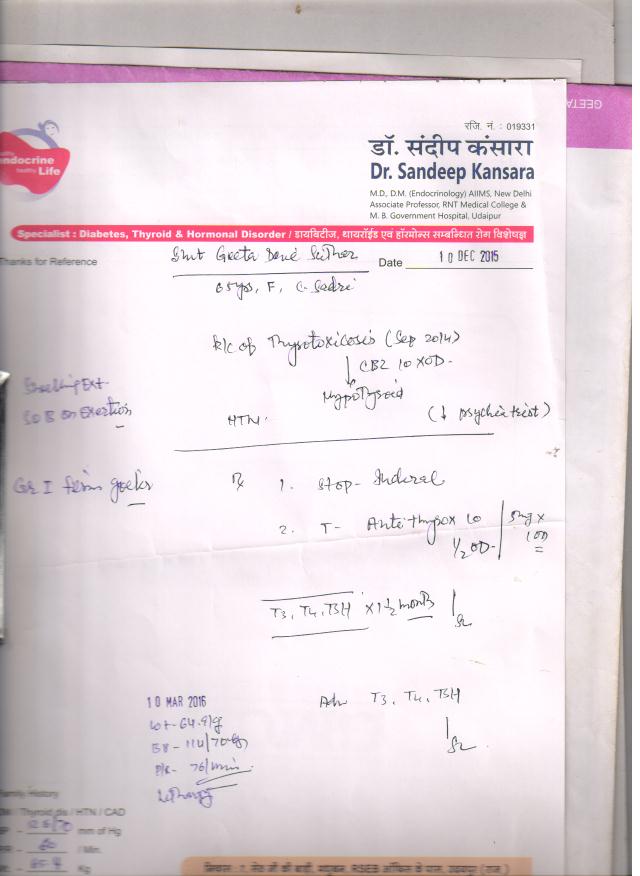 GEETA
रजि. नं. : 019331
डॉ. संदीप कंसारा
Dr. Sandeep Kansara
M.D., D.M. (Endocrinology) AIIMS, New Delhi
Associate Professor, RNT Medical College &
M. B. Government Hospital, Udaipur
endocrine
healthy Life
Specialist : Diabetes, Thyroid & Hormonal Disorder / डायबिटीज, थायरॉईड एवं हॉरमोन्स सम्बन्धित रोग विशेषज्ञ
Thanks for Reference
Smt Geeta Devi
Date 10 DEC 2015
65yrs, F, Sadri
k/c of Thyrotoxicosis (Sep 2014)
CBZ 10 XOD
Hypothyroid
Swelling Ext.
SOB on exertion
HTN.
(↓ psychiatrist)
Gr I firm
Rx 1. Stop - Inderal
2. T- Antithyrox 10
1/2 OD
5mg x
100
T3, T4, TSH x 1-1/2 month
10 MAR 2016
Adv T3, T4, TSH
wt - 64.9
BP - 114/70
P/R - 76/min
Lethargy
Family History
Thyroid dis / HTN / CAD
mm of Hg
/ Min.
Kg